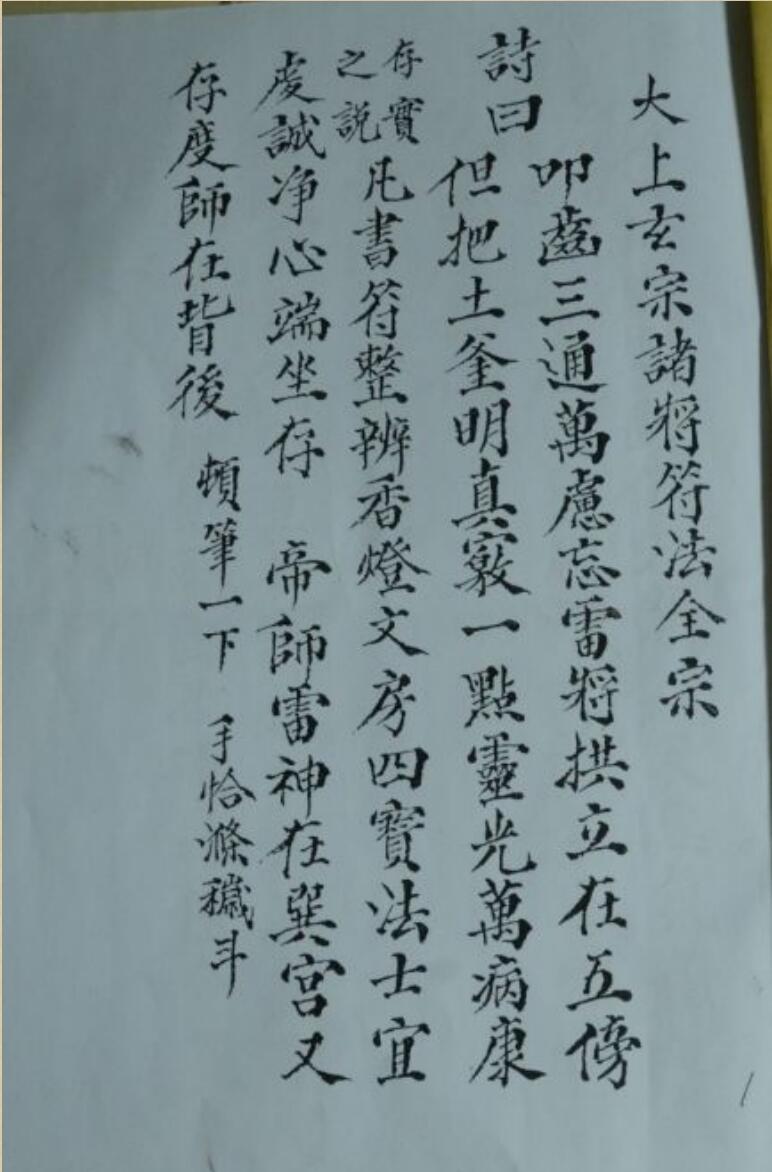 大上玄宗諸將符法全宗
詩曰
叩齒三通萬慮忘雷將拱立在五傍
但把土釜明真竅一點靈光萬病康
存實
之説
凡書符整辨香燈文房四寶法士宜
虔誠净心端坐存 帝師雷神在巽宫又
存度師在背後 頓筆一下 手恰滌穢斗